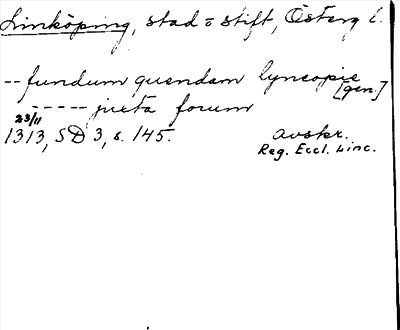 Linköping, stad o stift, Österg l.
-- fundum quendam lyncopie [gen.]
----- juxta forum
23/11
1313, SD 3, s. 145.
avskr.
Reg. Eccl. Linc.